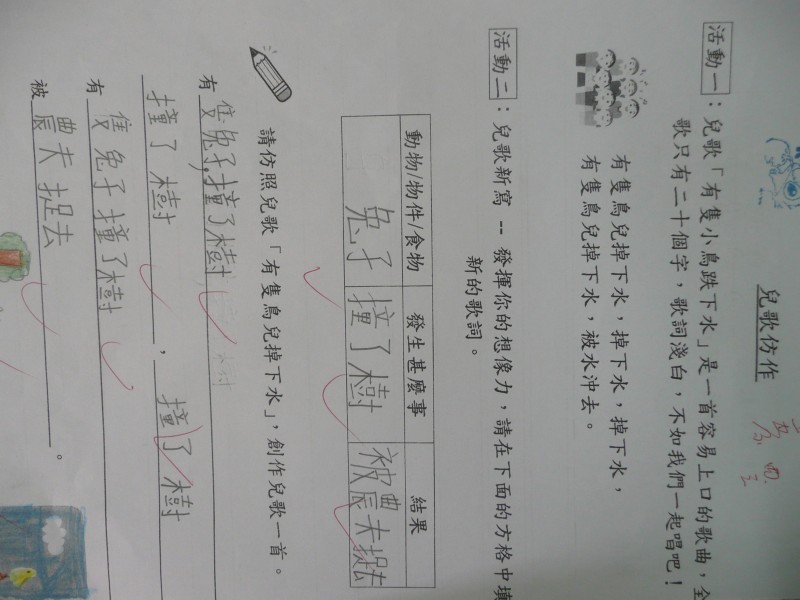 兒歌仿作
活動一：兒歌「有隻小鳥跌下水」是一首容易上口的歌曲，全
歌只有二十個字，歌詞淺白，不如我們一起唱吧！
有隻鳥兒掉下水，掉下水，掉下水，
有隻鳥兒掉下水，被水沖去。
活動二：兒歌新寫 -- 發揮你的想像力，請在下面的方格中填
新的歌詞。
動物/物件/食物 發生甚麼事 結果
兔子 撞了樹 被農夫捉去
請仿照兒歌「有隻鳥兒掉下水」，創作兒歌一首。
有隻兔子，撞了樹
撞了樹，撞了樹
有隻兔子撞了樹
被農夫捉去。